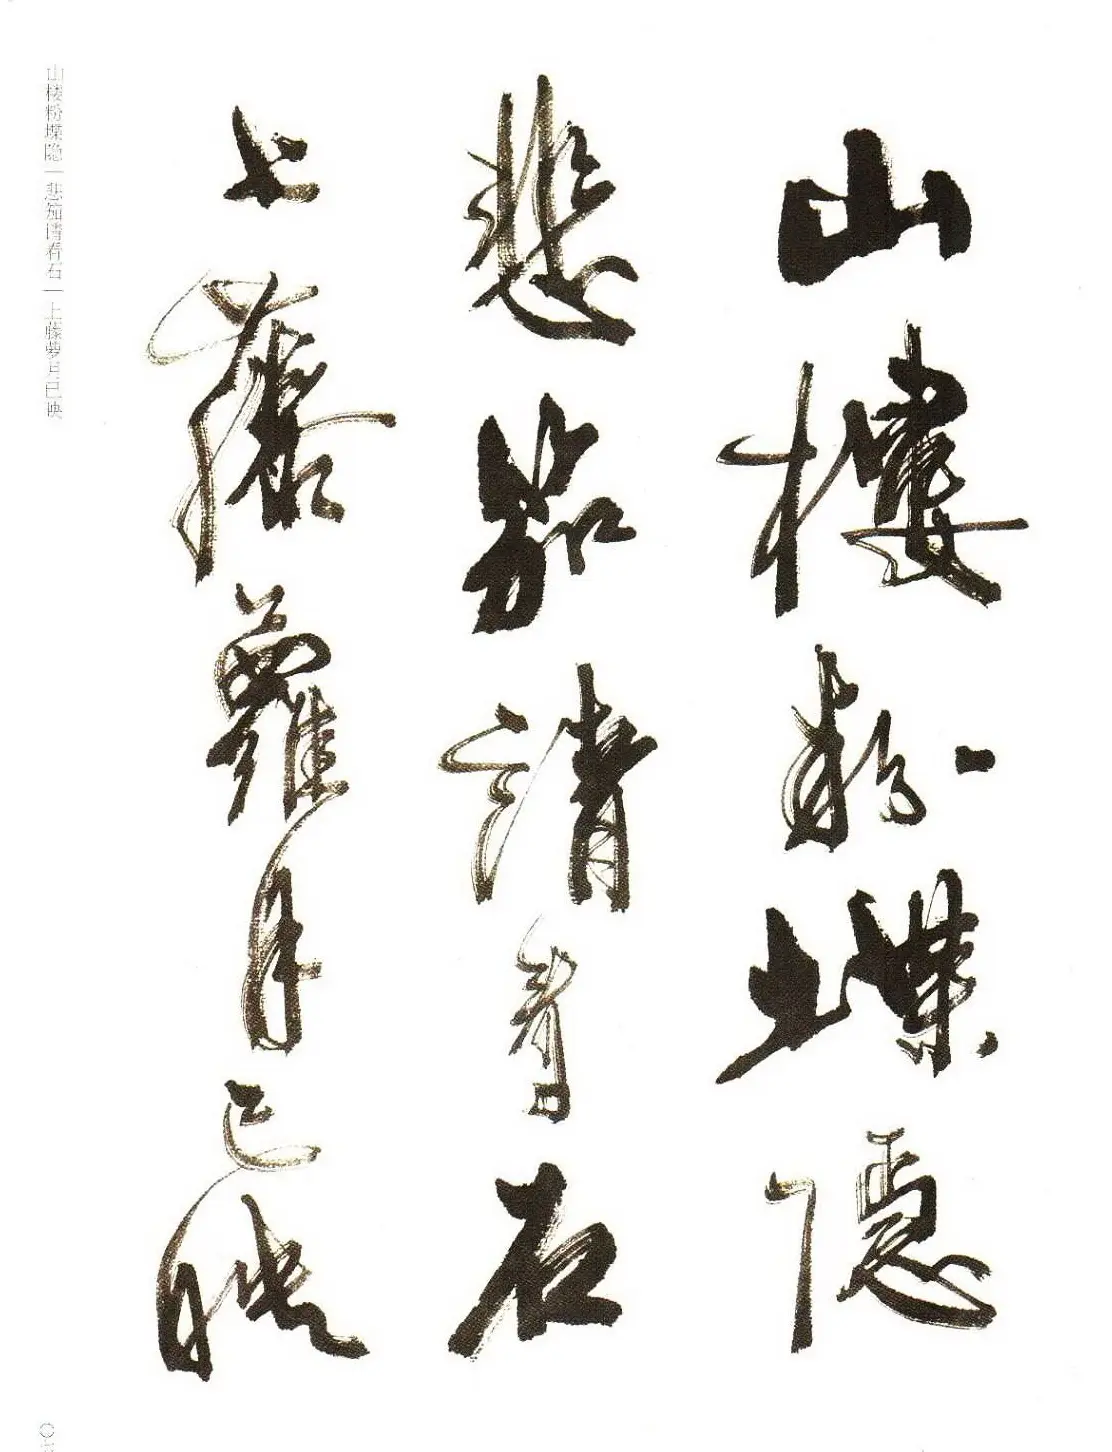 山樓粉堞隱
悲笳請看石
上藤蘿月已映
山楼粉堞隐｜悲笳请看石｜上藤萝月已映